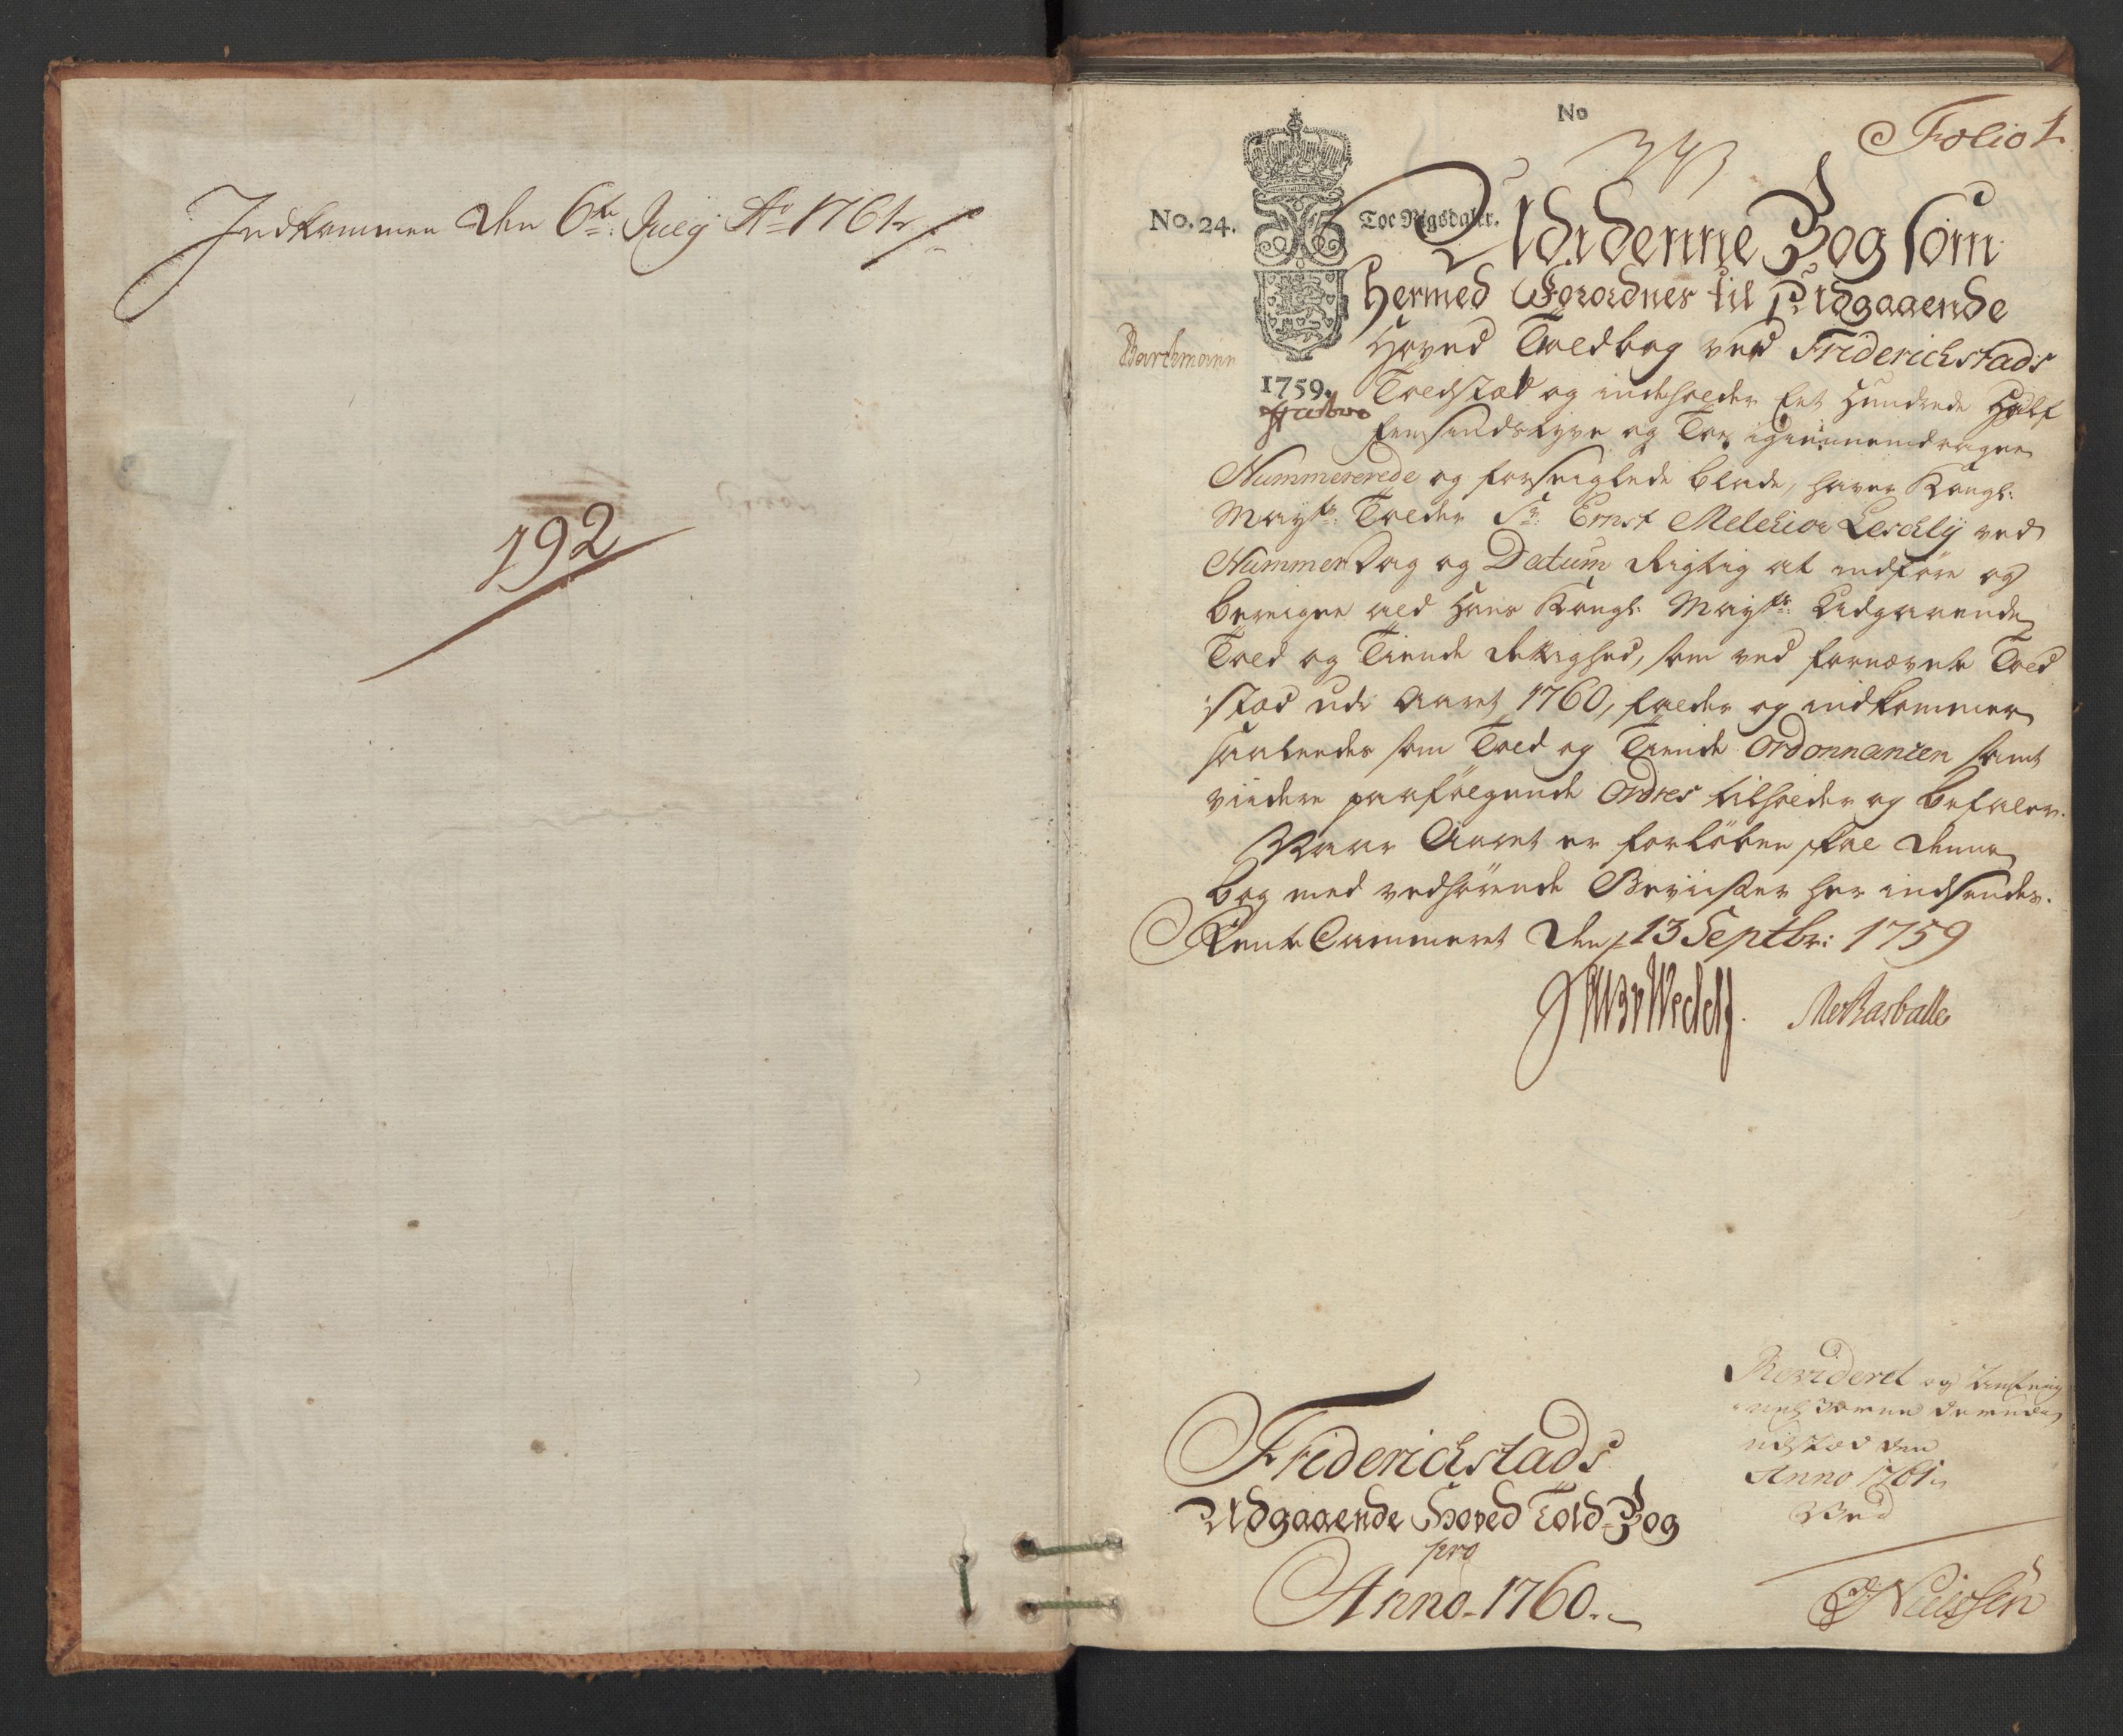 Indkommen den 6te: Julij Ao 1761
192
No
Folio 1.
343
No. 24.
Toe Rigsdaler.
Udi denne Bog som
hermed Forordnes til Udgaaende
Hoved Toldbog ved Friderichstads
Barchmann
1759.
Toldstæd og indeholder Eet Hundrede Half
femsindstyve og Toe igiennemdragne
Nummererede og forseiglede blade, haver Kongl:
Mayts: Tolder Sr: Ernst Melchior Leschly ved
Nummer Dag og Datum Rigtig at indføre og
beregne all Hans Kongl: Mayts: Udgaaende
Told og Tiende Rettighed, som ved fornævnte Told
stæd udi Aaret 1760, falder og indkommer
saaledes som Told og Tiende Ordonnancen samt
viidere paafølgende Ordres tilholder og befaler.
Naar Aaret er forløben skal denne
bog med vedhørende Beviister her indsendes.
Rente Cammeret den 13 Septbr: 1759
Friderichstads
Udgaaende Hoved Told-Bog
pro
Anno. 1760.
Revideret og
Anno 1761.
Ved
Nielssen